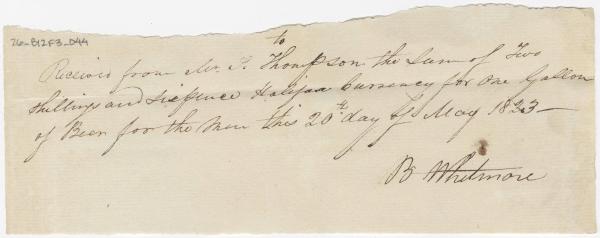 76-B12F3-D44
to
Received from Mr. T. Thompson the Sum of Two
Shillings and Sixpence Halifax Currency for One Gallon
of Beer for the Men this 20th day of May 1823—
B Whitmore